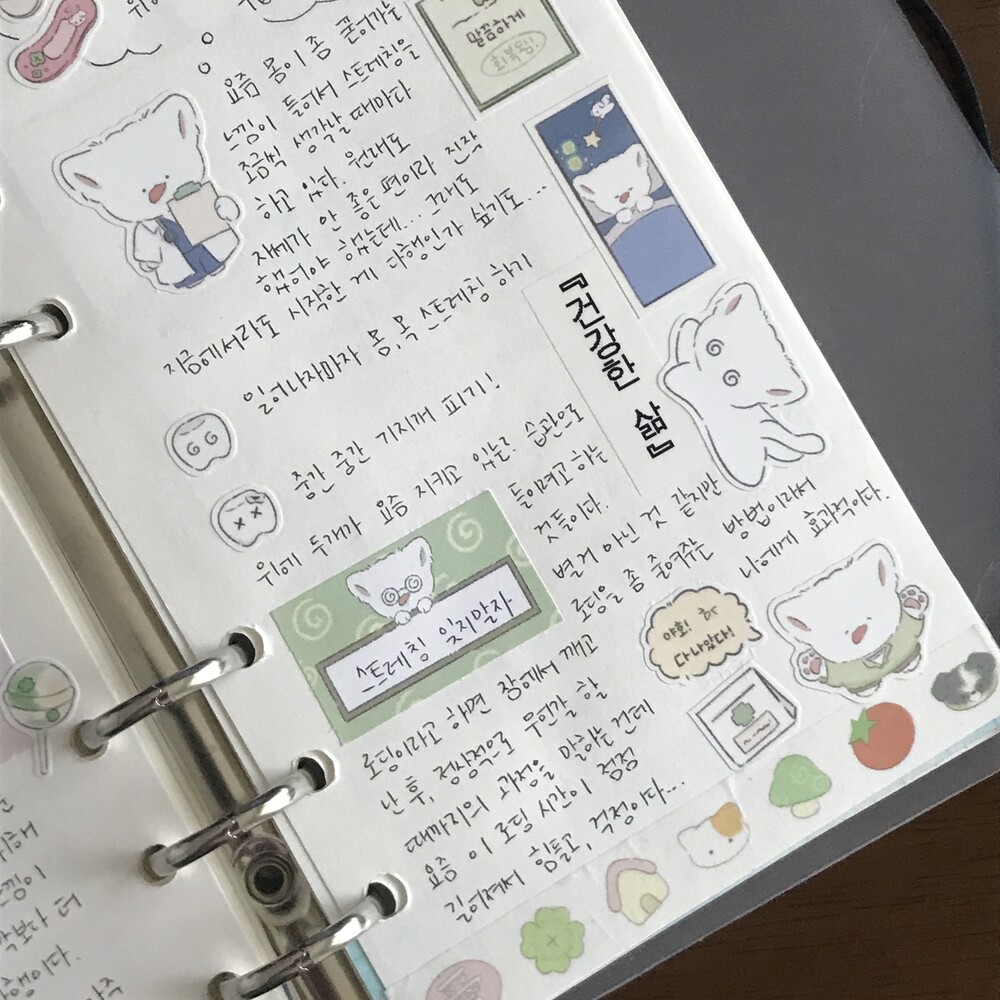 말끔하게
회복됨!
요즘 몸이 좀 굳어가는
느낌이 들어서 스트레칭을
조금씩 생각날 때마다
하고 있다. 원래도
자세가 안 좋은 편이라 진작
했었어야 했는데... 그래도
지금에서라도 시작한 게 다행인가 싶기도...
『건강한 삶』
일어나자마자 몸, 목 스트레칭 하기
중간 중간 기지개 피기!
위에 두개가 요즘 지키고 있는. 습관으로
들이려고 하는
것들이다.
별거 아닌 것 같지만
로딩을 좀 줄여주는 방법이라서
나에게 효과적이다.
스트레칭 잊지말자
야호!
다 나았다!
로딩이라고 하면 잠에서 깨고
난 후, 정상적으로 무언갈 할
때까지의 과정을 말하는 건데
요즘 이 로딩 시간이 점점
길어져서 힘들고, 걱정이다...
느낌이